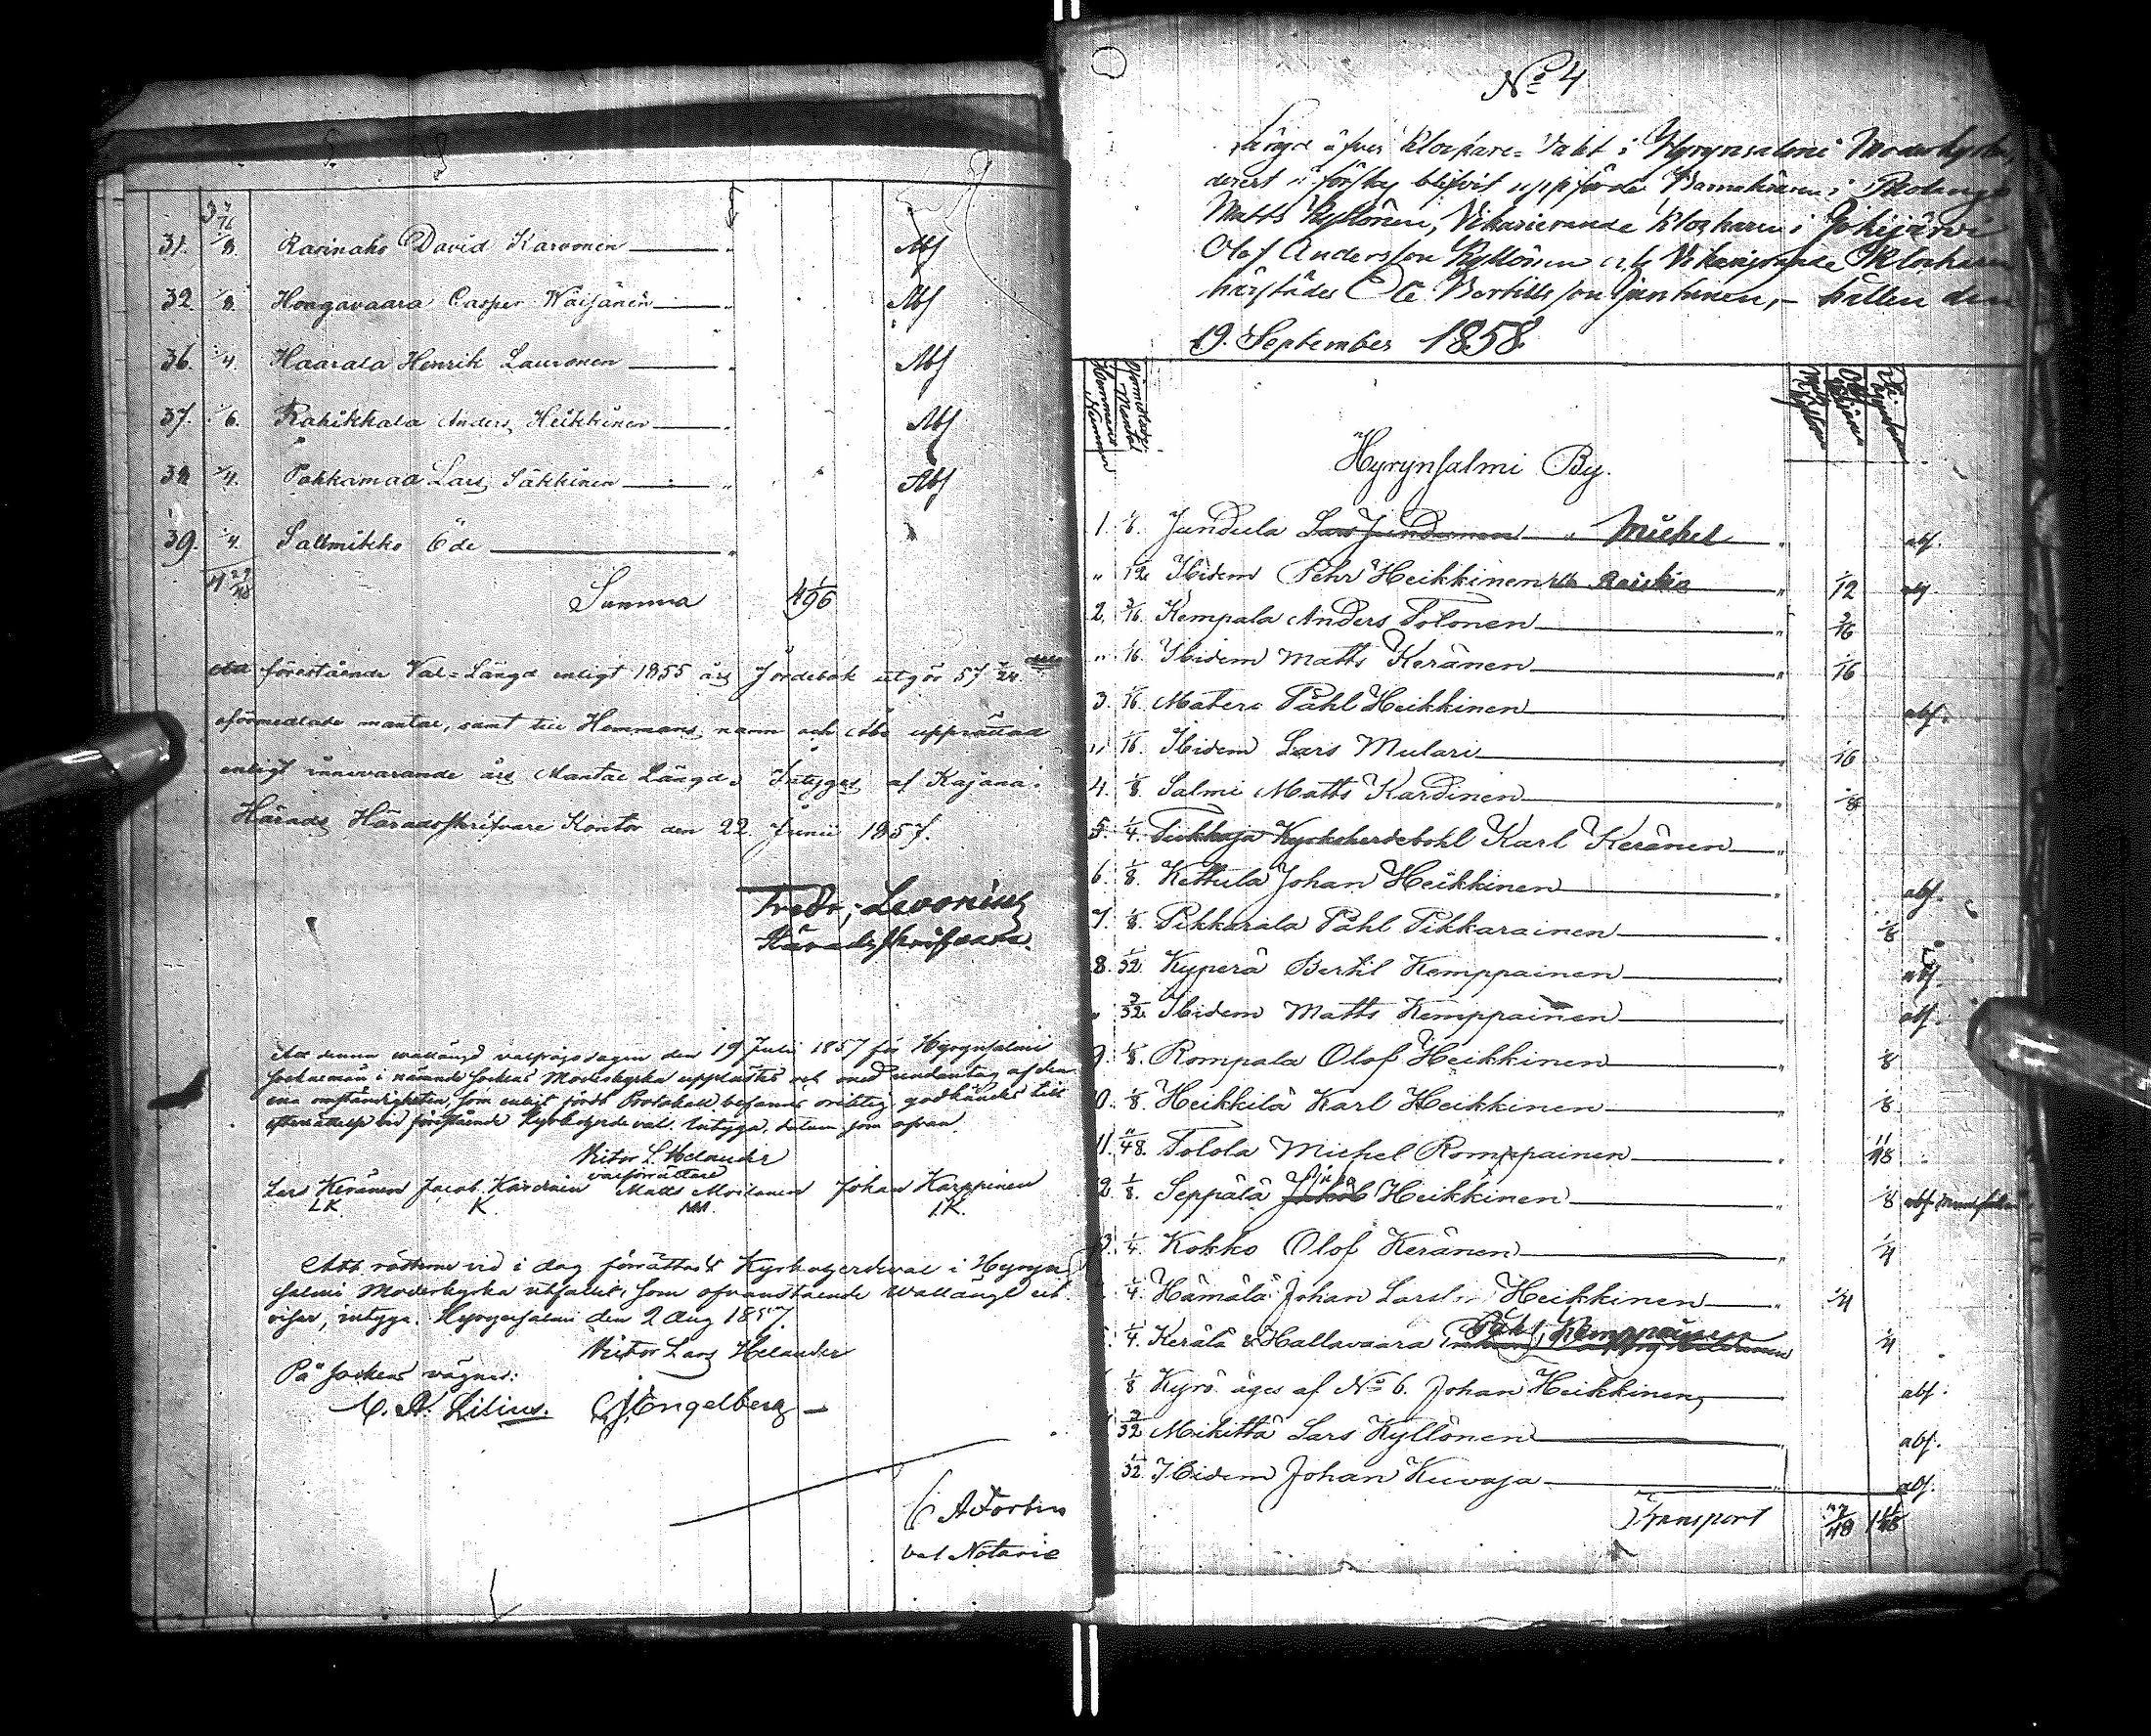 3 7/16
31. 1/8. Ravinaho David Karvonen " Abs
32. 1/8. Hongavaara Casper Wäisänen " Abs
36. 1/4. Haarala Henrik Lauronen " Abs
37. 1/6. Rahikkala Anders Heikkinen " Abs
38. 1/4. Pakkamaa Lars Säkkinen " Abs
39. 1/4. Sallmikko Öde "
Summa
förestående Val-Längd enligt 1855 års Jordebok utgör 57
oförmedlade mantal, samt till Hemmans namn och Åbo upprättad
enligt innevarande års Mantals Längd. Intygas af Kajana
Härads Häradsskrifvare Kontor den 22 Junii 1857.
Fredr. Levonius
Häradsskrifvare.
Att denna vallängd den 19 Julii 1857 för Hyrynsalmi
Sockenmän i Moderkyrka upplästes och med undantag af den
ena omständigheten, som enligt fördt Protokoll befanns oriktig, godkändes till
efterrättelse vid förestående Kyrkoherde val. Intyga, datum som ofvan.
Victor L. Helander
valförrättare
Lars Keränen Jacob Kardinen Matts Moilanen Johan Karppinen
LK. K. MM. I.K.
Att rösterne vid i dag förrättadt Kyrkoherdeval i Hyryn
salmi Moderkyrka utfallit, som ofvanstående Vallängd ut
visar, intyga. Hyrynsalmi den 2 Aug 1857.
Victor Lars Helander
På Sockens vägnar:
C. A. Lilius. Engelberg
A Forbus
val Notarie
No 4
Längd öfver Klockare-Valet i Hyrynsalmi Moderkyrka,
derest å förslag blifvit uppförde Barnaläraren i Paldamo
Matts Kyllönen, Vikarierande Klockaren i Jokijärvi
Olof Andersson Kyllönen och Vikarierande Klockaren
härstädes Ole Bertillsson Juntunen, hållen den
19. September 1858
Hemmans Nummer
Oförmedladt Mantal
Hyrynsalmi By.
1. 1/8. Juntula Lars Juntunen " Michel " abs.
" 1/12. Ibidem Pehr Heikkinen Raiskio " 1/12
2. 3/16. Kempala Anders Tolonen " 3/16
" 1/16. Ibidem Matts Keränen " 1/16
3. 1/16. Matero Påhl Heikkinen " abs.
" 1/16. Ibidem Lars Mulari " 1/16
4. 1/8. Salmi Matts Kardinen " 1/8
5. 1/4. Kyrkoherdebohl Karl Keränen "
6. 1/8. Kettula Johan Heikkinen " abs.
7. 1/8. Pikkarala Påhl Pikkarainen " 1/8
8. 1/32. Kyperä Bertil Kemppainen " abs.
" 3/32. Ibidem Matts Kemppainen " abs.
9. 1/8. Rompala Olof Heikkinen " 1/8
10. 1/8. Heikkilä Karl Heikkinen " 1/8
11. 11/48. Tolola Michel Romppainen " 11/48
12. 1/8. Seppälä Jakob Heikkinen " 1/8 abs.
1/4. Kokko Olof Keränen " 1/4
1/4. Hämälä Johan Larss. Heikkinen " 1/4
1/4. Kerälä & Hallavaara Påhl Kemppainen 1/4
1/8 Kyrö äges af No 6. Johan Heikkinen, abs.
3/32 Mikittä Lars Kyllönen " abs.
1/32. Ibidem Johan Kuvaja " abs.
Transport